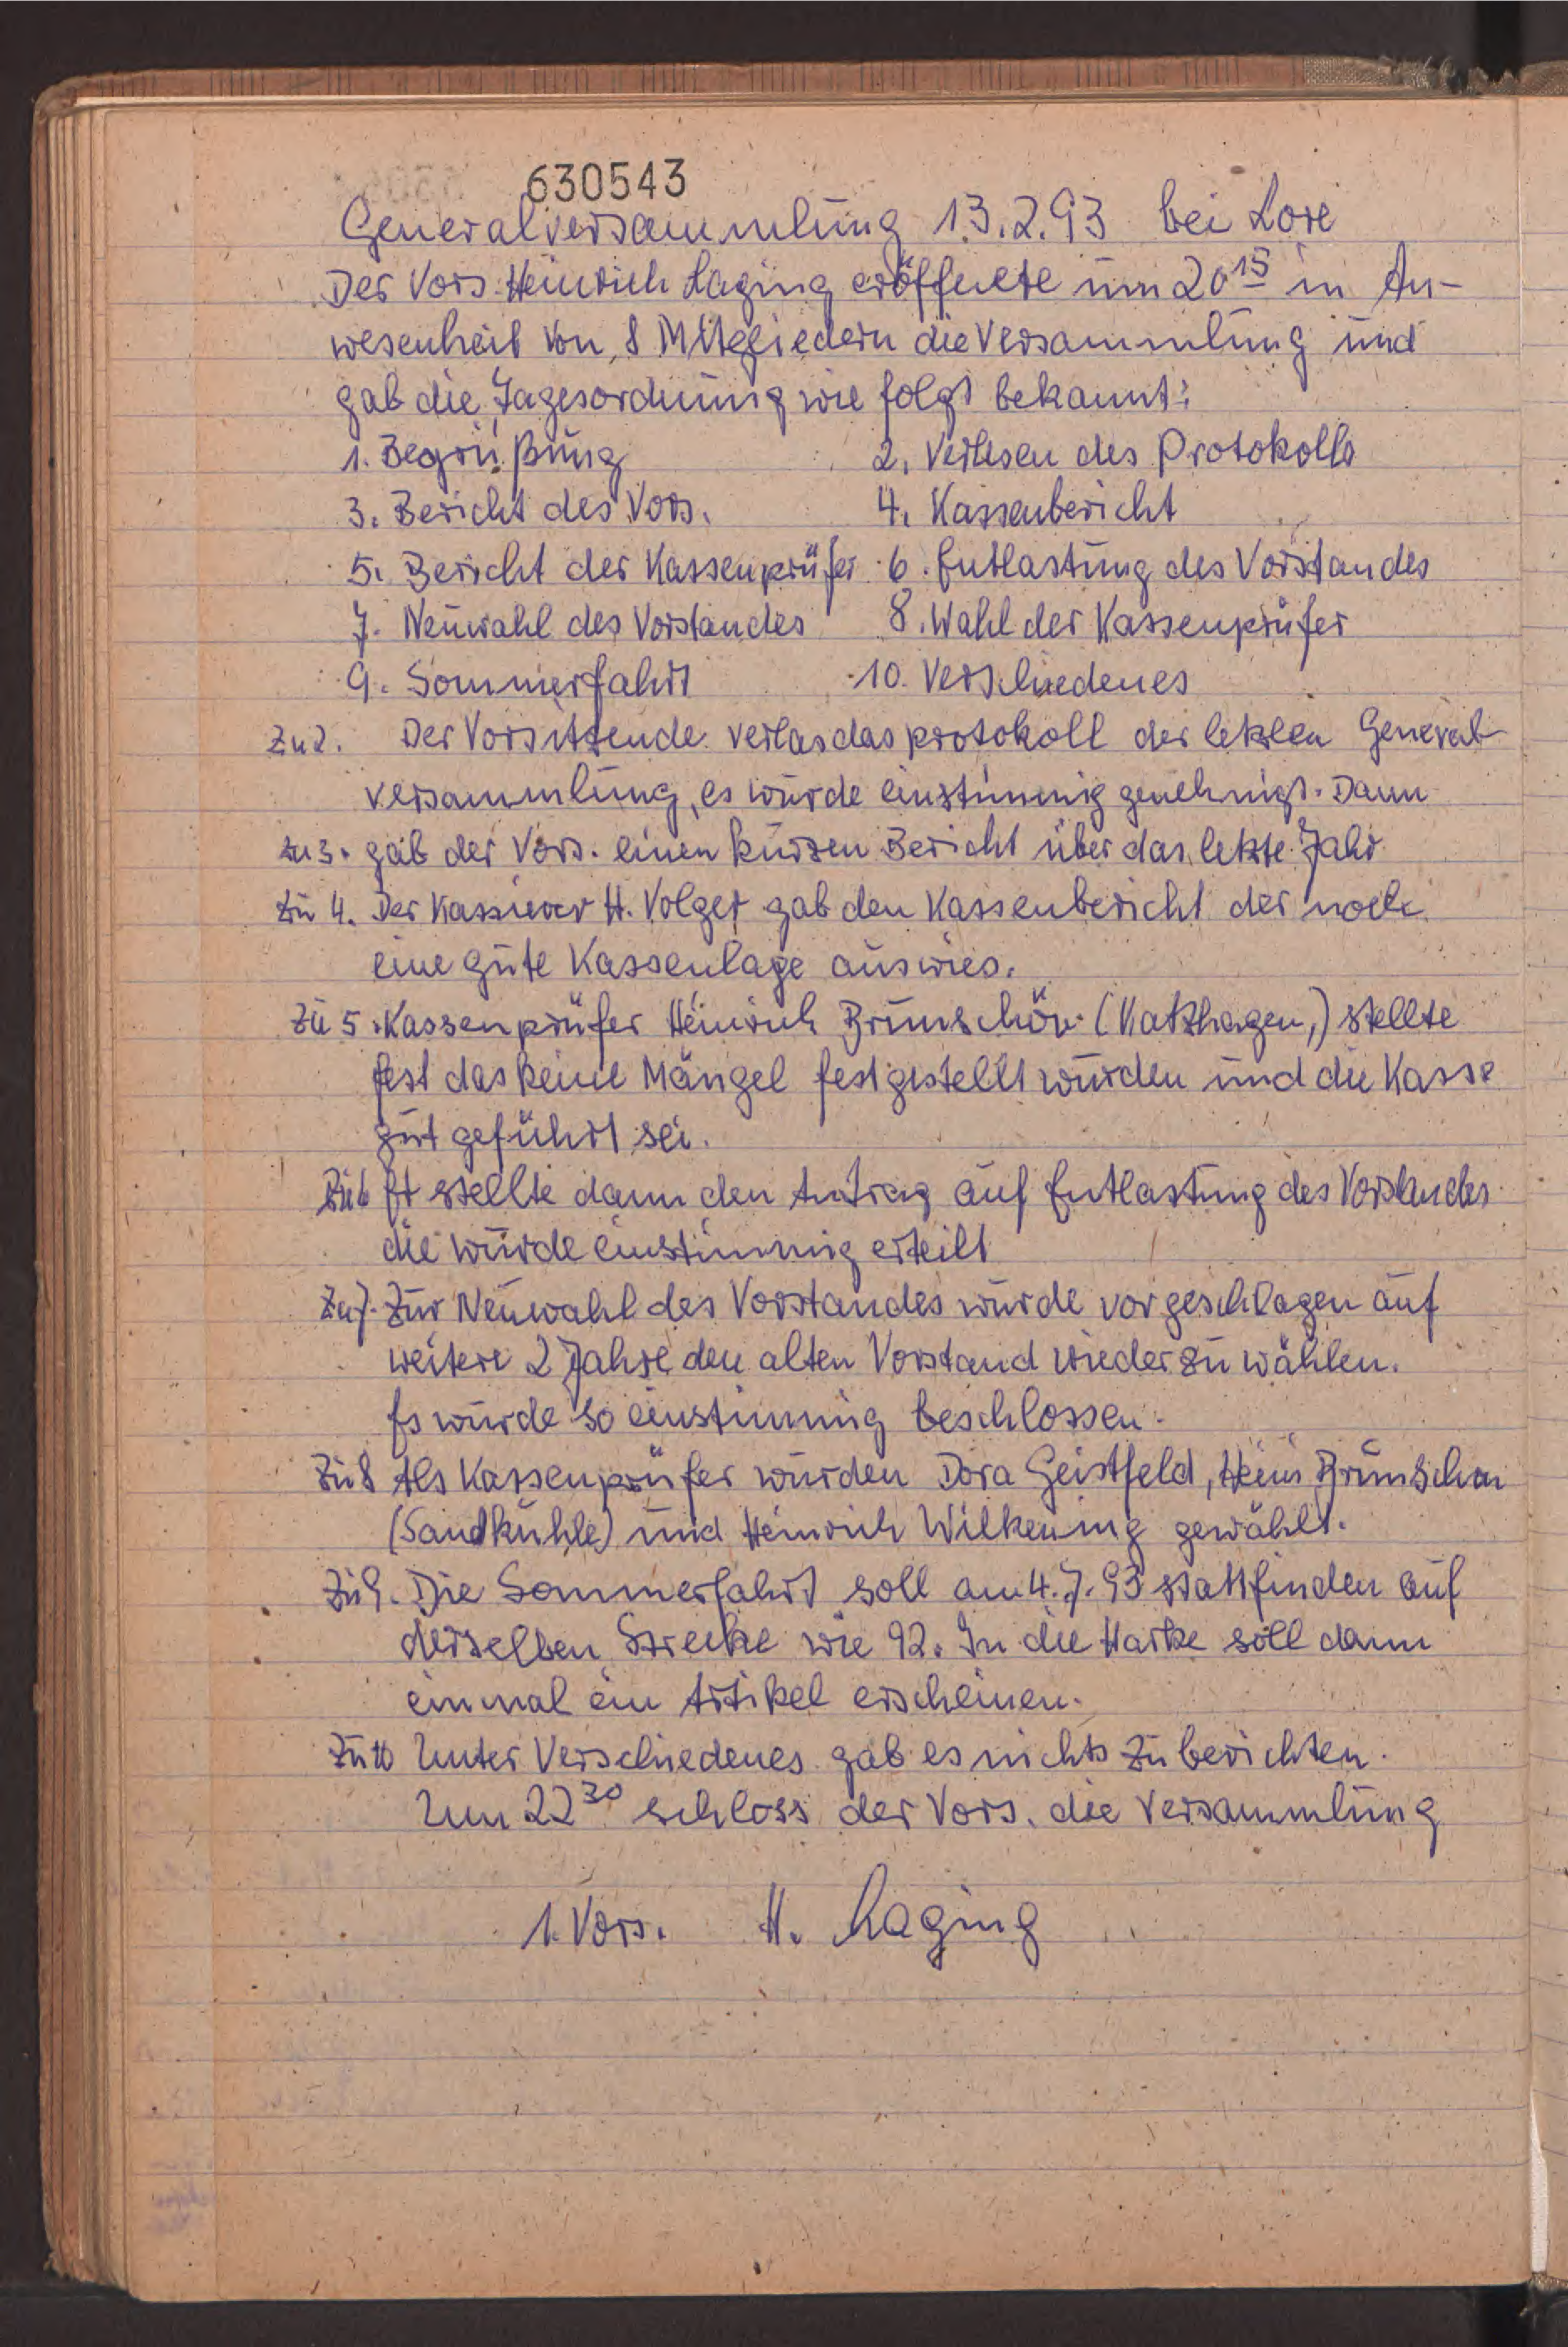 630543
Generalversammlung 13.2.93 bei Lore
Der Vors. Heinrich Laging eröffnete um 20 15 in An-
wesenheit von 8 Mitgliedern die Versammlung und
gab die Tagesordnung wie folgt bekannt:
1. Begrüßung 2. Verlesen des Protokolls
3. Bericht des Vors. 4. Kassenbericht
5. Bericht der Kassenprüfer 6. Entlastung des Vorstandes
7. Neuwahl des Vorstandes 8. Wahl der Kassenprüfer
9. Sommerfahrt 10. Verschiedenes
Zu 2. Der Vorsitzende verlas das protokoll der letzten General-
versammlung, es wurde einstimmig genehmigt. Dann
zu 3. gab der Vors. einen kurzen Bericht über das letzte Jahr
zu 4. Der Kassierer H. Volger gab den Kassenbericht der noch
eine gute Kassenlage auswies.
Zu 5. Kassenprüfer Heinrich Brunschön (Katzhagen,) stellte
fest das keine Mängel festgestellt wurden und die Kasse
gut geführt sei.
Zu 6 Er stellte dann den Antrag auf Entlastung des Vorstandes
die wurde einstimmig erteilt
Zu 7. Zur Neuwahl des Vorstandes wurde vorgeschlagen auf
weitere 2 Jahre den alten Vorstand wieder zu wählen.
Es wurde so einstimmig beschlossen.
Zu 8 Als Kassenprüfer wurden Dora Geistfeld, Heinr Brunschön
(Sandkuhle) und Heinrich Wilkening gewählt.
Zu 9. Die Sommerfahrt soll am 4.7.93 stattfinden auf
derselben Strecke wie 92. In die Harke soll dann
einmal ein Artikel erscheinen.
Zu 10 Unter Verschiedenes gab es nichts zu berichten.
Um 22 30 schloss der Vors. die Versammlung
1. Vors. H. Laging